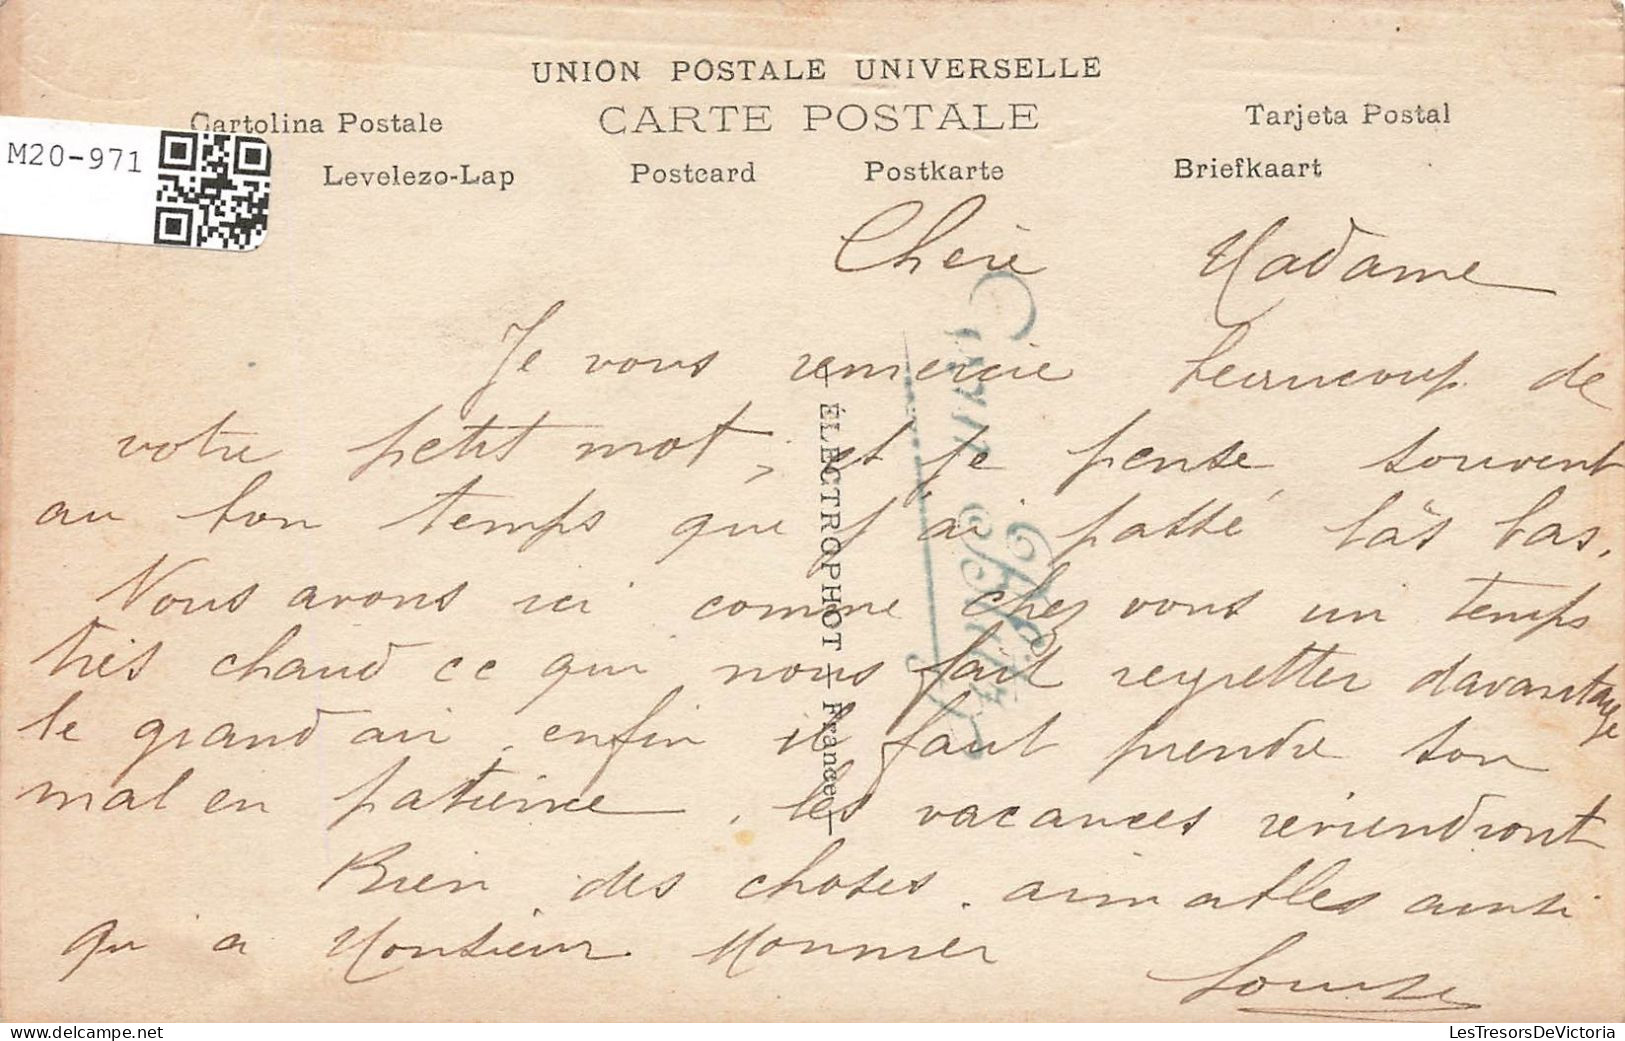 UNION POSTALE UNIVERSELLE
Cartolina Postale CARTE POSTALE Tarjeta Postal
M20-971
Levelezo-Lap Postcard Postkarte Briefkaart
Chère Madame
Je vous remercie beaucoup de
votre petit mot, et je pense souvent
au bon temps que j'ai passé làs bas.
Nous avons ici comme chez vous un temps
très chaud ce qui nous fait regretter davantage
le grand air, enfin il faut prendre son
mal en patience, les vacances reviendront
Bien des choses aimables ainsi
qu'a Monsieur Monnier
Louise
— ÉLECTROPHOT — France —
LesTresorsDeVictoria
www.delcampe.net